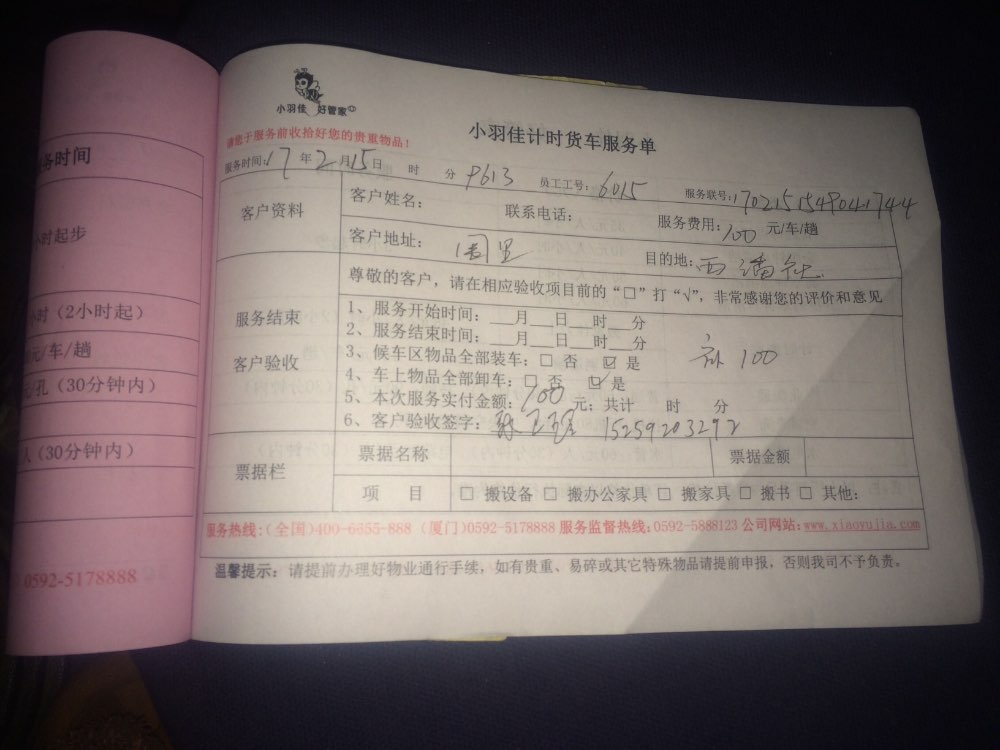 务时间
小时起步
小时（2小时起）
元/车/趟
元/孔（30分钟内）
人（30分钟内）
0592-5178888
小羽佳 好管家
请您于服务前收拾好您的贵重物品！
小羽佳计时货车服务单
服务时间：17年2月15日 时 分 9613 员工工号：6015 服务联号：1702151549041744
客户资料
客户姓名： 联系电话： 服务费用：100 元/车/趟
客户地址： 目的地：西潘社
服务结束
客户验收
尊敬的客户，请在相应验收项目前的“□”打“√”，非常感谢您的评价和意见
1、服务开始时间：__月__日__时__分
2、服务结束时间：__月__日__时__分
3、候车区物品全部装车：□ 否 ☑ 是
4、车上物品全部卸车：□ 否 ☑ 是
100
5、本次服务实付金额：100 元；共计 时 分
6、客户验收签字： 15259203292
票据栏
票据名称 票据金额
项 目 □ 搬设备 □ 搬办公家具 □ 搬家具 □ 搬书 □ 其他：
服务热线：（全国）400-6655-888（厦门）0592-5178888 服务监督热线：0592-5888123 公司网站：www.xiaoyujia.com
温馨提示：请提前办理好物业通行手续，如有贵重、易碎或其它特殊物品请提前申报，否则我司不予负责。